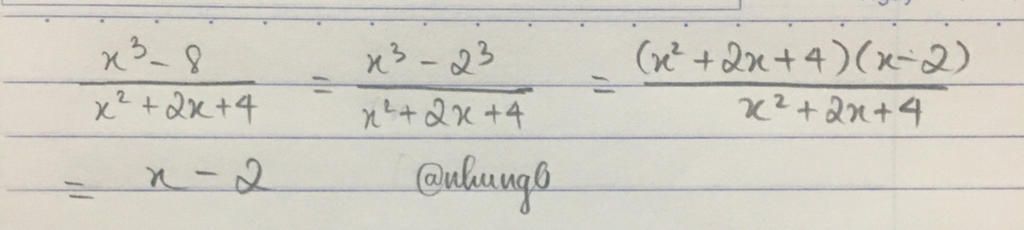 (x³ - 8)/(x² + 2x + 4) = (x³ - 2³)/(x² + 2x + 4) = ((x² + 2x + 4)(x - 2))/(x² + 2x + 4)
= x - 2 @nhung6